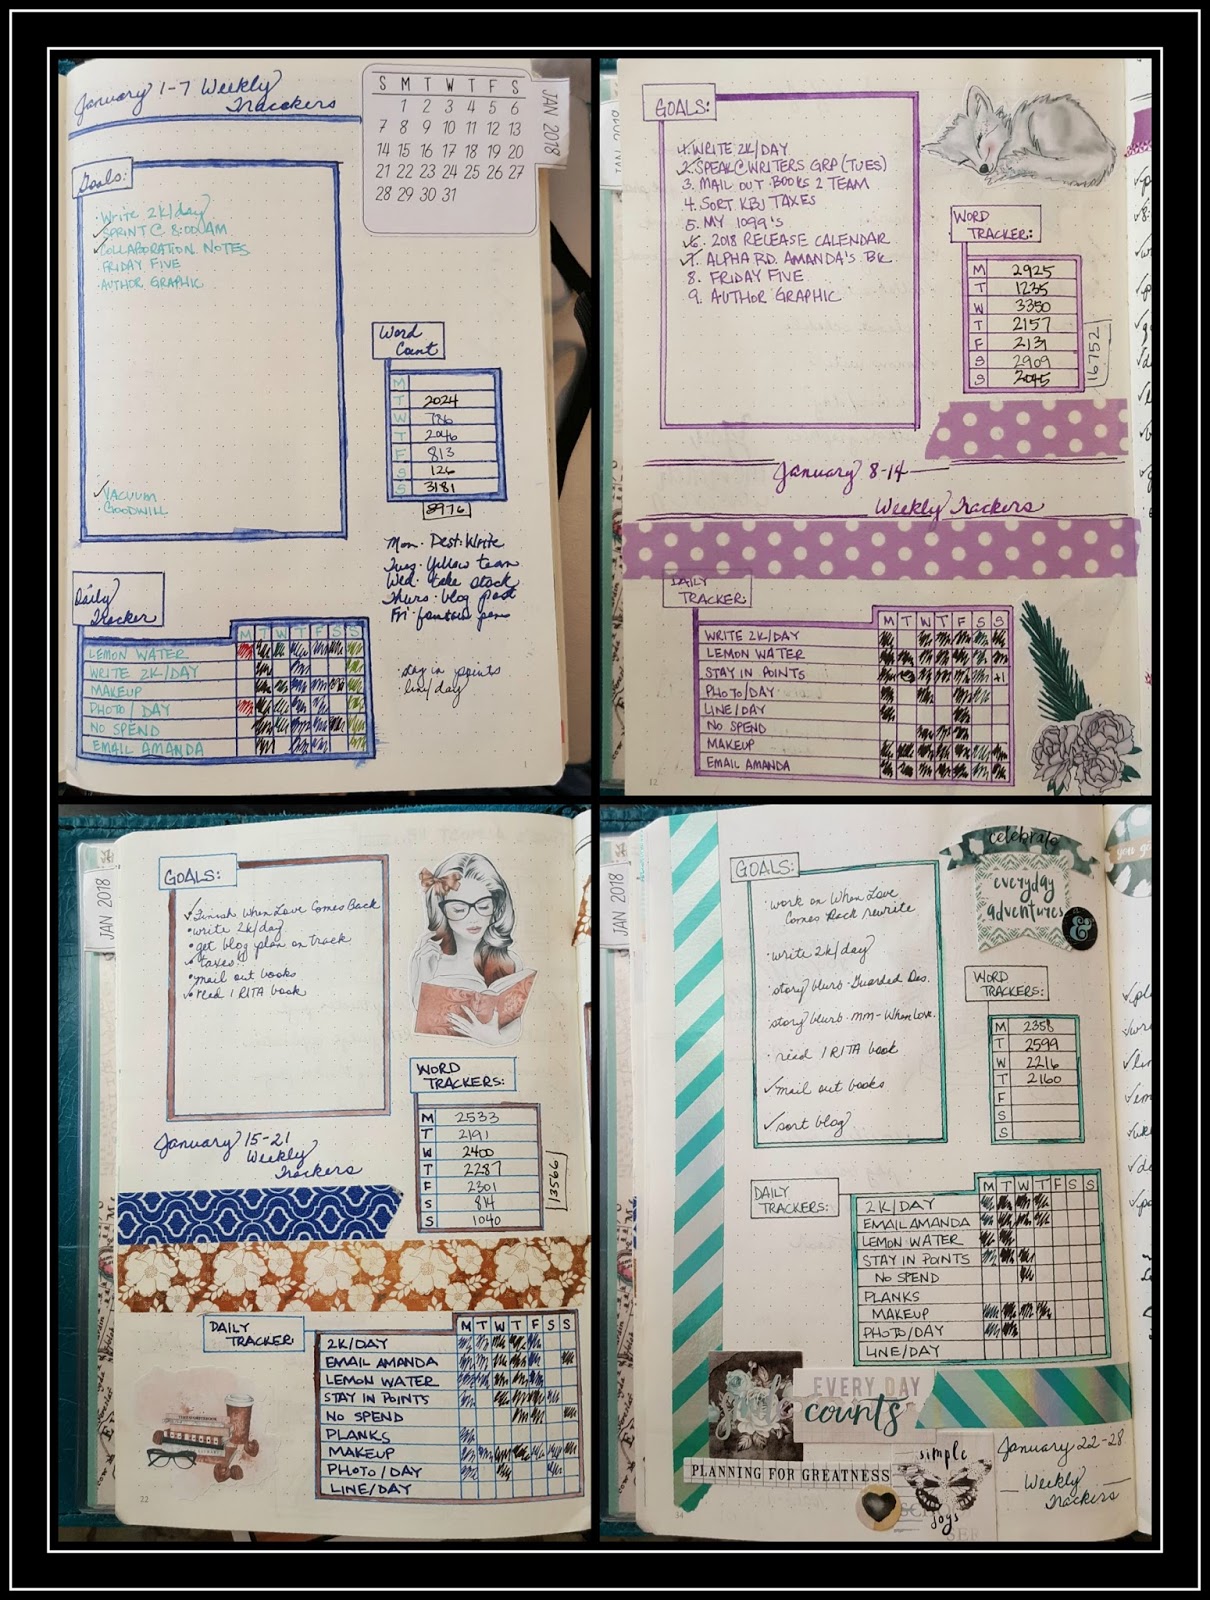 January 1-7 Weekly
Trackers
S M T W T F S
1 2 3 4 5 6
7 8 9 10 11 12 13
14 15 16 17 18 19 20
21 22 23 24 25 26 27
28 29 30 31
JAN 2018
Goals:
· Write 2k/day
SPRINT @ 8:00 AM
COLLABORATION NOTES
· FRIDAY FIVE
· AUTHOR GRAPHIC
VACUUM
GOODWILL
Word
Count
M
T 2024
W 786
T 2046
F 813
S 126
S 3181
8976
Mon. Dest. Write
Tues. Yellow team
Wed. take stock
Thurs. blog post
Fri. fountain pens
· stay in points
line/day
Daily
Tracker
M T W T F S S
LEMON WATER
WRITE 2K/DAY
MAKEUP
PHOTO/DAY
NO SPEND
EMAIL AMANDA
1
JAN 2018
GOALS:
1. WRITE 2K/DAY
2. SPEAK @ WRITERS GRP (TUES)
3. MAIL OUT BOOKS 2 TEAM
4. SORT KBJ TAXES
5. MY 1099's
6. 2018 RELEASE CALENDAR
7. ALPHA RD. AMANDA'S BK
8. FRIDAY FIVE
9. AUTHOR GRAPHIC
WORD
TRACKER:
M 2925
T 1235
W 3350
T 2157
F 2131
S 2909
S 2045
16752
January 8-14
Weekly Trackers
DAILY
TRACKER:
M T W T F S S
WRITE 2K/DAY
LEMON WATER
STAY IN POINTS +1
PHOTO/DAY
LINE/DAY
NO SPEND
MAKEUP
EMAIL AMANDA
12
JAN 2018
GOALS:
✓ Finish When Love Comes Back
• write 2k/day
• get blog plan on track
• taxes!!
• mail out books
• read 1 RITA book
WORD
TRACKERS:
M 2533
T 2191
W 2400
T 2287
F 2301
S 814
S 1040
13566
January 15-21
Weekly
Trackers
DAILY
TRACKER:
M T W T F S S
2K/DAY
EMAIL AMANDA
LEMON WATER
STAY IN POINTS
NO SPEND
PLANKS
MAKEUP
PHOTO/DAY
LINE/DAY
22
JAN 2018
celebrate
everyday
adventures
&
GOALS:
· work on When Love
Comes Back rewrite
· write 2k/day
· story blurb - Guarded Des.
· story blurb - mm - When Love.
· read 1 RITA book
✓ mail out books
✓ sort blog
WORD
TRACKERS:
M 2358
T 2599
W 2216
T 2160
F
S
S
DAILY
TRACKERS:
M T W T F S S
2K/DAY
EMAIL AMANDA
LEMON WATER
STAY IN POINTS
NO SPEND
PLANKS
MAKEUP
PHOTO/DAY
LINE/DAY
EVERY DAY
counts
PLANNING FOR GREATNESS
simple
joys
January 22-28
Weekly
Trackers
34